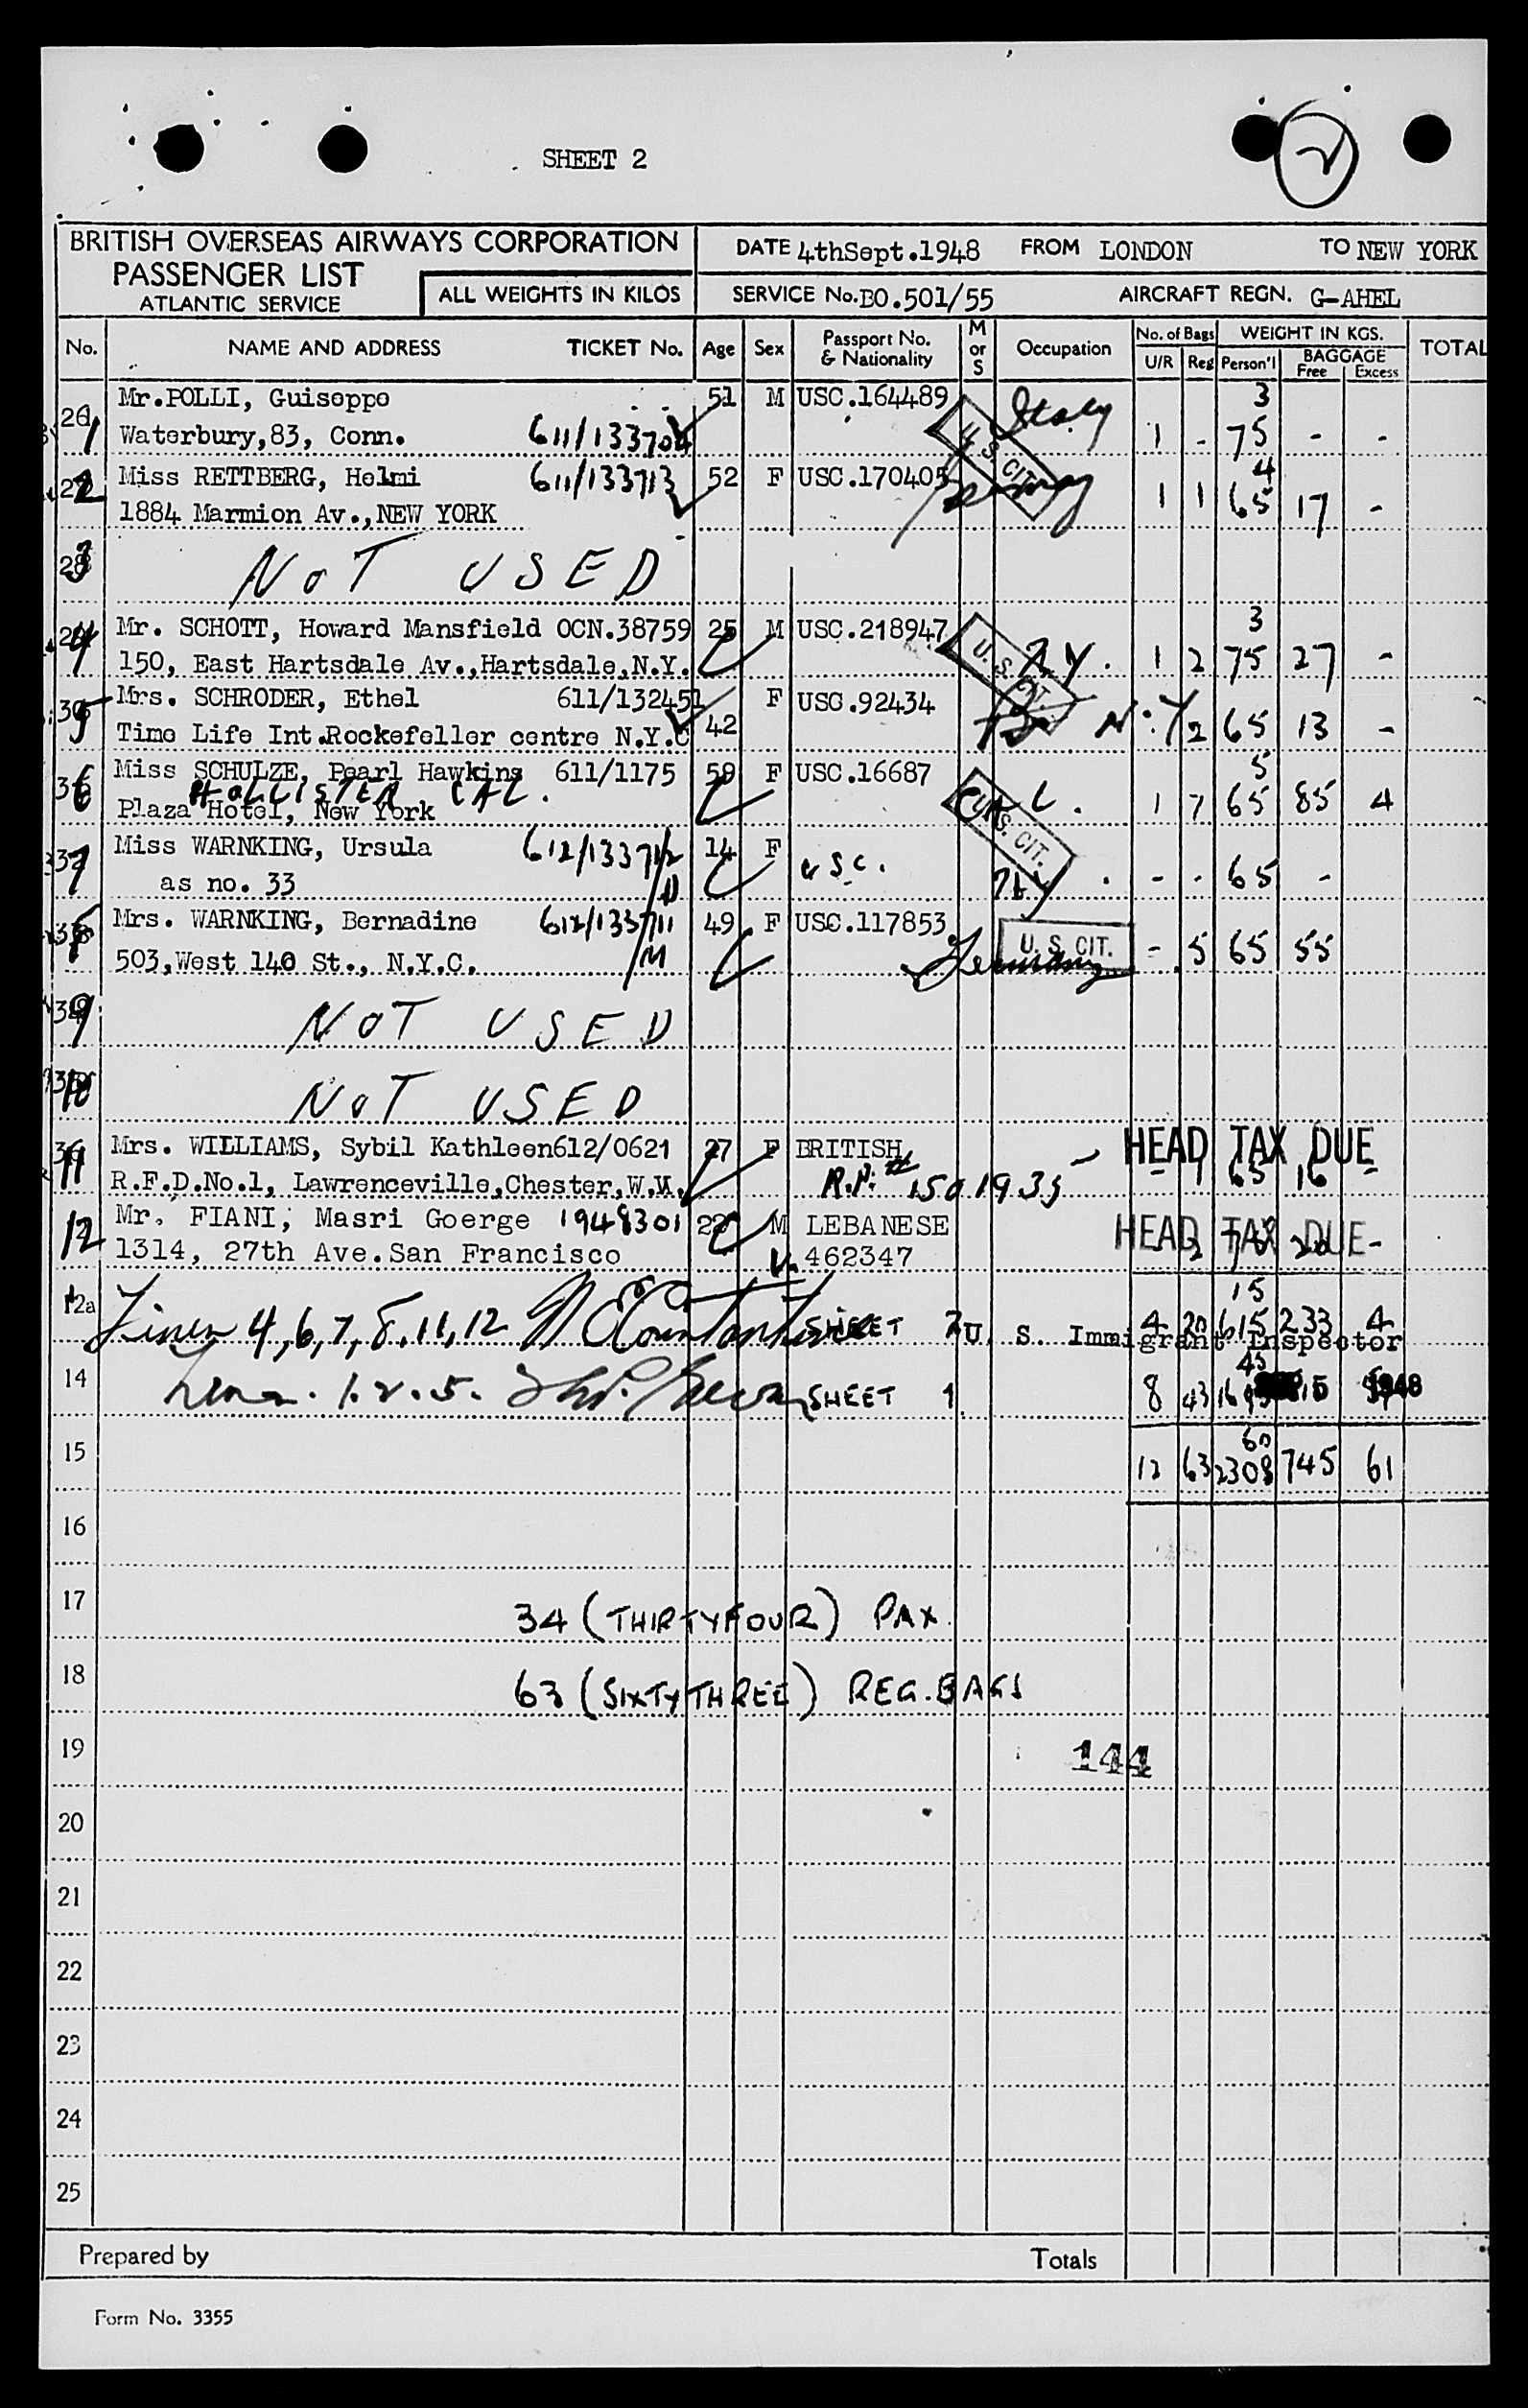 SHEET 2
2
BRITISH OVERSEAS AIRWAYS CORPORATION
PASSENGER LIST
ATLANTIC SERVICE
ALL WEIGHTS IN KILOS
DATE 4thSept.1948 FROM LONDON TO NEW YORK
SERVICE No.BO.501/55 AIRCRAFT REGN. G-AHEL
No. NAME AND ADDRESS TICKET No. Age Sex Passport No. & Nationality M or S Occupation No. of Bags U/R Reg WEIGHT IN KGS. Person'l BAGGAGE Free Excess TOTAL
1 Mr.POLLI, Guiseppe 51 M USC.164489 Italy 3
Waterbury,83, Conn. 611/133704 U. S. CIT. 1 - 75 - -
2 Miss RETTBERG, Helmi 611/133713 52 F USC.170405 Germany 4
1884 Marmion Av.,NEW YORK 1 1 65 17 -
3 NOT USED
4 Mr. SCHOTT, Howard Mansfield OCN.38759 25 M USC.218947 3
150, East Hartsdale Av.,Hartsdale,N.Y. U. S. CIT. N.Y. 1 2 75 27 -
5 Mrs. SCHRODER, Ethel 611/132451 F USC.92434
Time Life Int.Rockefeller centre N.Y.C 42 N.Y 2 65 13 -
6 Miss SCHULZE, Pearl Hawkins 611/1175 59 F USC.16687 5
HOLLISTER CAL.
Plaza Hotel, New York CAL. U. S. CIT. 1 7 65 85 4
7 Miss WARNKING, Ursula 612/133712 14 F USC.
as no. 33 NY. - - 65 -
8 Mrs. WARNKING, Bernadine 612/133711 49 F USC.117853
503,West 140 St., N.Y.C. M Germany U. S. CIT. - 5 65 55
9 NOT USED
10 NOT USED
11 Mrs. WILLIAMS, Sybil Kathleen612/0621 27 F BRITISH HEAD TAX DUE
R.F.D.No.1, Lawrenceville,Chester,W.V. 1501935 - 1 65 16 -
12 Mr. FIANI, Masri Goerge 1948301 22 M LEBANESE HEAD TAX DUE
1314, 27th Ave.San Francisco 462347
12a Lines 4,6,7,8,11,12 SHEET 2 U. S. Immigrant Inspector 15
4 20 615 233 4
14 Lines 1.2.5. SHEET 1 45
8 43
15 60
12 63 2308 745 61
16
17 34 (THIRTYFOUR) PAX.
18 63 (SIXTYTHREE) REG.BAGS
19 144
20
21
22
23
24
25
Prepared by Totals
Form No. 3355